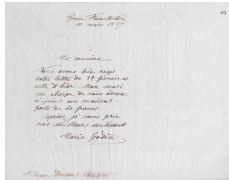 10 mars 1887
Ma cousine,
Nous avons bien reçu
votre lettre du 28 février et
celle d'hier. Mon mari
me charge de vous adresser
ci-joint un mandat-
poste de 20 francs.
Agréez, je vous prie
nos meilleurs sentiments
Marie Godin